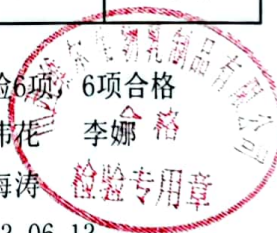 验6项，6项合格
伟花 李娜
海涛
06 13
乳制品有限公司
合格
检验专用章